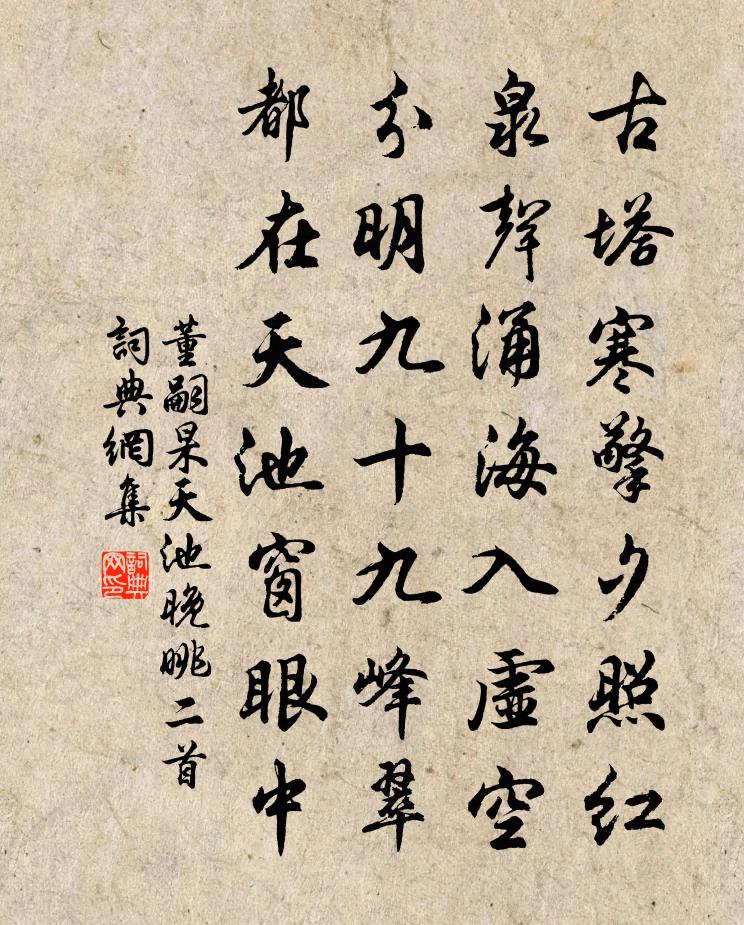 古塔寒擎夕照紅
泉聲涌海入虛空
分明九十九峰翠
都在天池窗眼中
董嗣杲天池晚眺二首
詞典網集
詞典網印